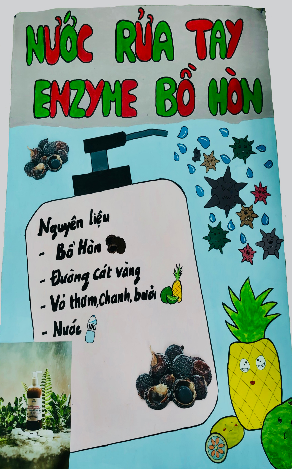 NƯỚC RỬA TAY
ENZYME BỒ HÒN
Nguyên liệu
- Bồ Hòn
- Đường cát vàng
- Vỏ thơm, chanh, bưởi
- Nước